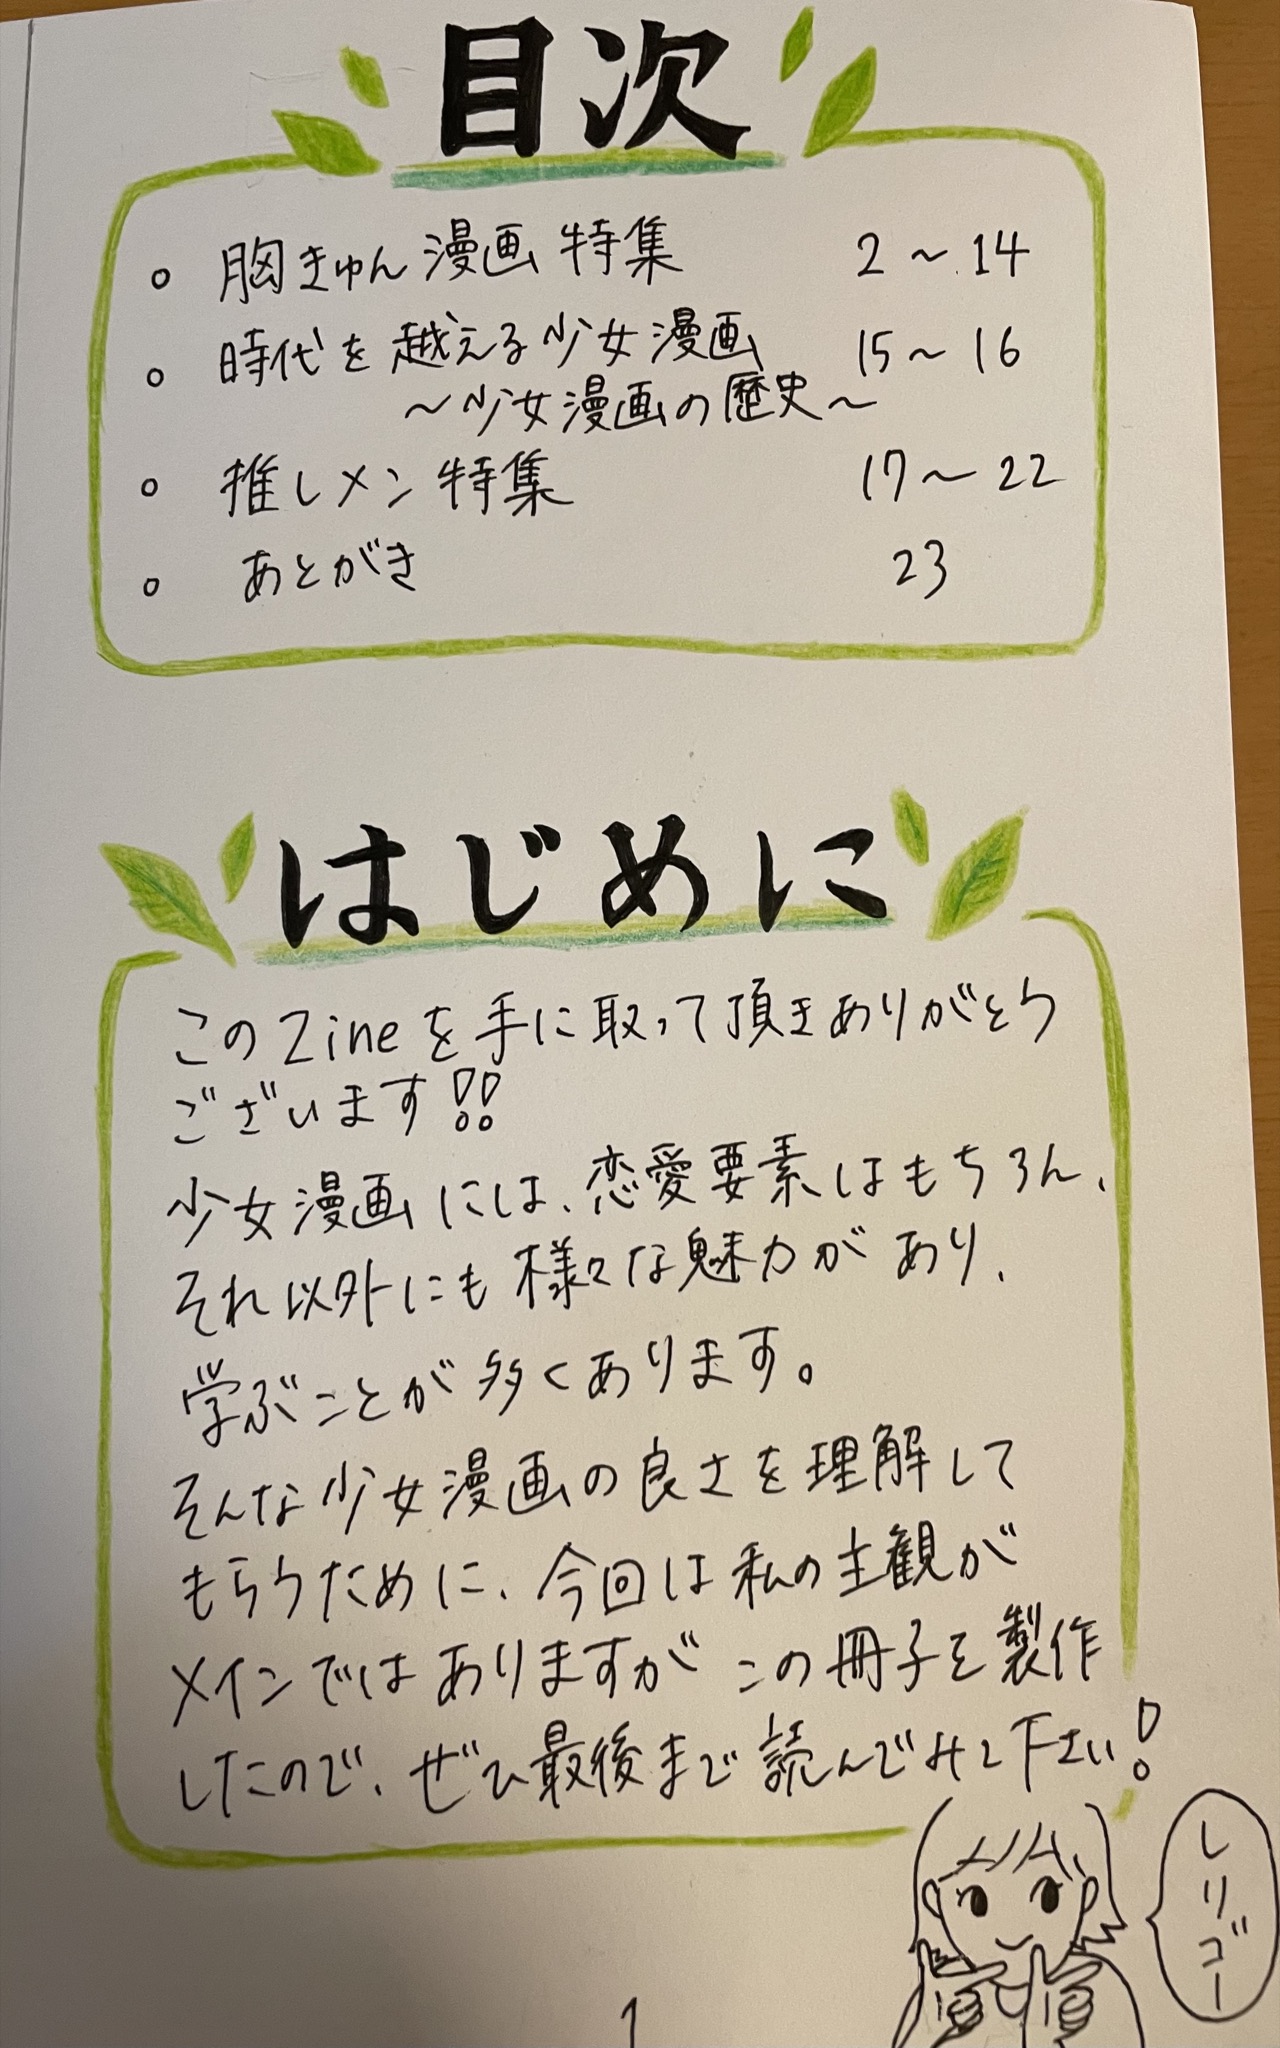 目次
。胸きゅん漫画特集 2〜14
。時代を越える少女漫画 15〜16
〜少女漫画の歴史〜
。推しメン特集 17〜22
。あとがき 23
はじめに
このZineを手に取って頂きありがとう
ございます!!
少女漫画には、恋愛要素はもちろん、
それ以外にも様々な魅力があり、
学ぶことが多くあります。
そんな少女漫画の良さを理解して
もらうために、今回は私の主観が
メインではありますがこの冊子を製作
したので、ぜひ最後まで読んでみて下さい!
しりゴー
1